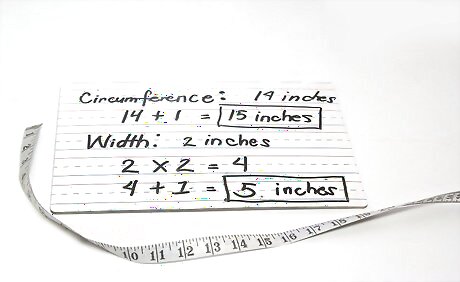 Circumference: 14 inches
14 + 1 = 15 inches
Width: 2 inches
2 x 2 = 4
4 + 1 = 5 inches
10 11 12 13 14 15 16 17 18